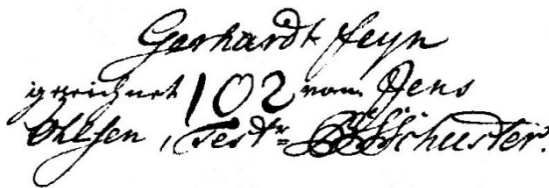 Gerhardt feyn
igezeichnet 102 von Jens
Ohlsen, Testr. Schuster.